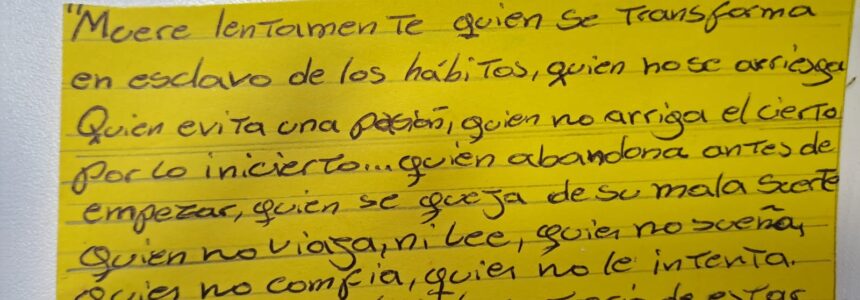 "Muere lentamente quien se transforma
en esclavo de los hábitos, quien no se arriesga
Quien evita una pasión, quien no arriga el cierto
por lo inicierto... quien abandona antes de
empezar, quien se queja de su mala suerte
quien no viaja, ni lee, quien no sueña,
quien no comfia, quien no le intenta.
de estar